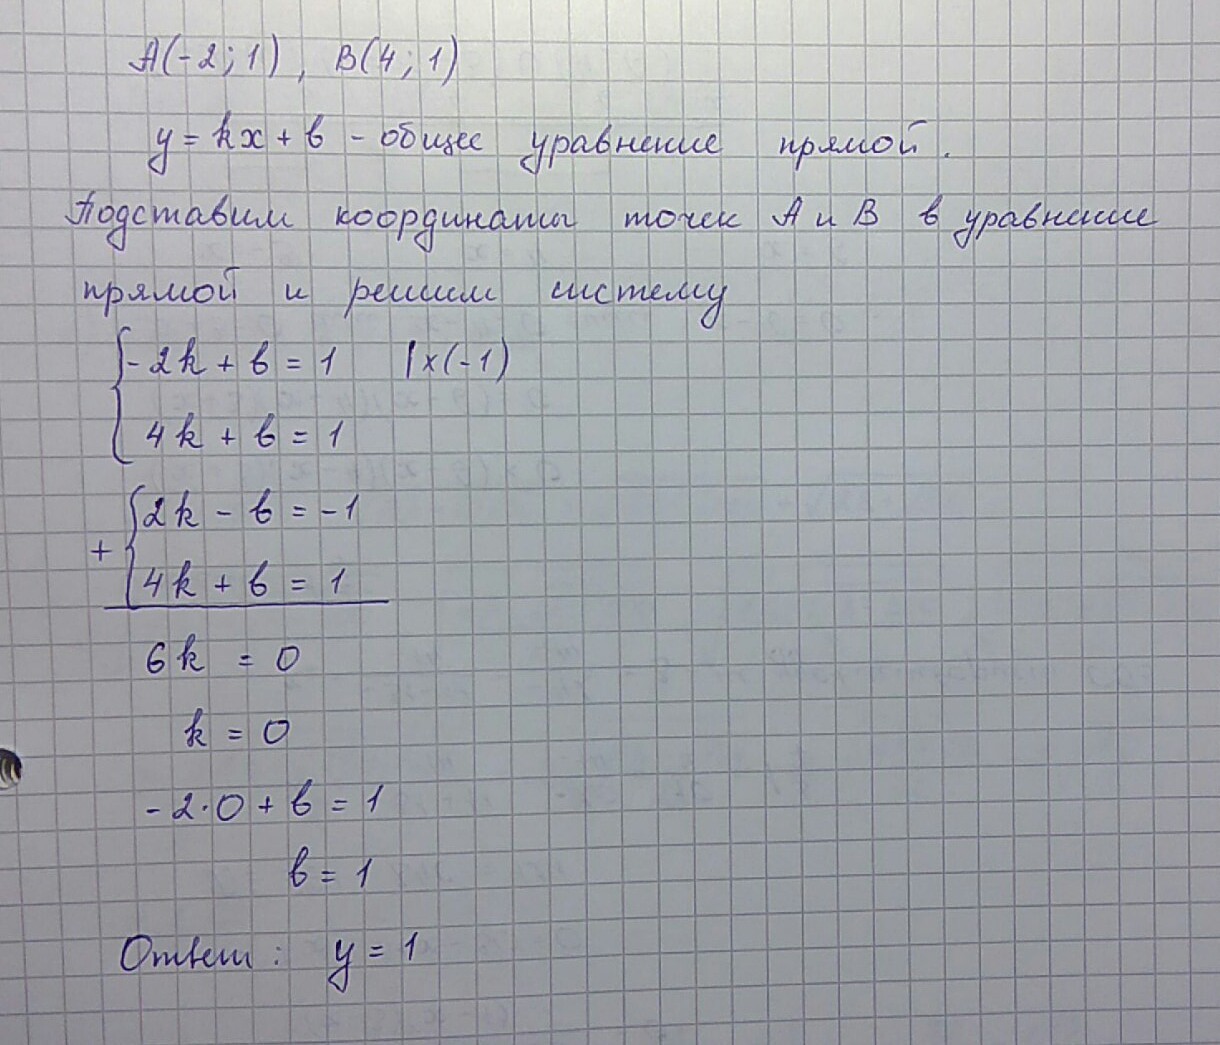 A(-2; 1), B(4; 1)
y = kx + b - общее уравнение прямой.
Подставим координаты точек A и B в уравнение
прямой и решим систему
{-2k + b = 1 |x(-1)
4k + b = 1
+ {2k - b = -1
4k + b = 1
6k = 0
k = 0
-2·0 + b = 1
b = 1
Ответ: y = 1